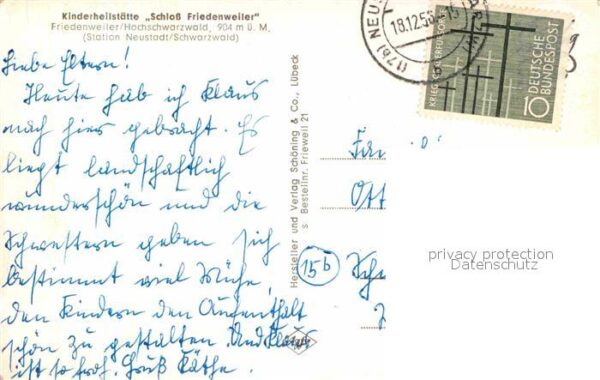 Kinderheilstätte „Schloß Friedenweiler"
Friedenweiler/Hochschwarzwald, 904 m ü. M.
(Station Neustadt/Schwarzwald)
Liebe Eltern!
Heute hab ich Klaus
nach hier gebracht. Es
liegt landschaftlich
wunderschön und die
Schwestern geben sich
bestimmt viel Mühe,
den Kindern den Aufenthalt
schön zu gestalten. Und Klaus
ist so froh. Gruß Käthe.
Hersteller und Verlag Schöning & Co., Lübeck
s Bestellnr. Frieweil 21
(17b) NEU
18.12.56
KRIEGSGRÄBERFÜRSORGE
DEUTSCHE
BUNDESPOST
10
Fam
Ott
15b
Sch
privacy protection
Datenschutz